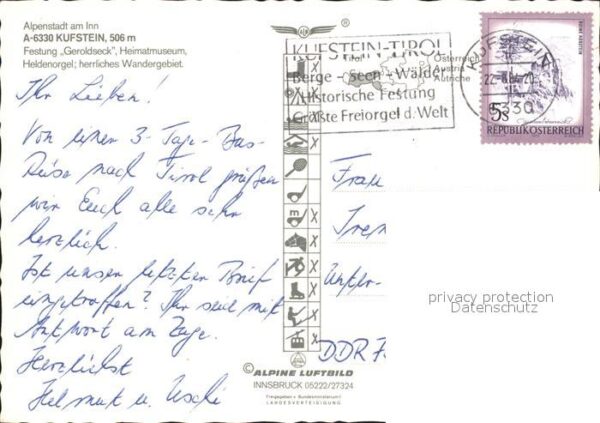 Alpenstadt am Inn
A-6330 KUFSTEIN, 506 m
Festung „Geroldseck", Heimatmuseum,
Heldenorgel; herrliches Wandergebiet.
Ihr Lieben!
Von einer 3-Tage-Bus-
Reise nach Tirol grüßen
wir Euch alle sehr
herzlich.
Ist unser letzter Brief
eingetroffen? Ihr seid mit
Antwort am Zuge.
Herzlichst
Helmut u. Uschi
KUFSTEIN-TIROL
Berge - Seen - Wälder
Historische Festung
Größte Freiorgel d. Welt
Tirol
Österreich
Austria
Autriche
KUFSTEIN
6330
5S
REPUBLIK ÖSTERREICH
Frau
Unter-
DDR 7
privacy protection
Datenschutz
m
© ALPINE LUFTBILD
INNSBRUCK 05222/27324
Freigegeben v. Bundesministerium f.
LANDESVERTEIDIGUNG